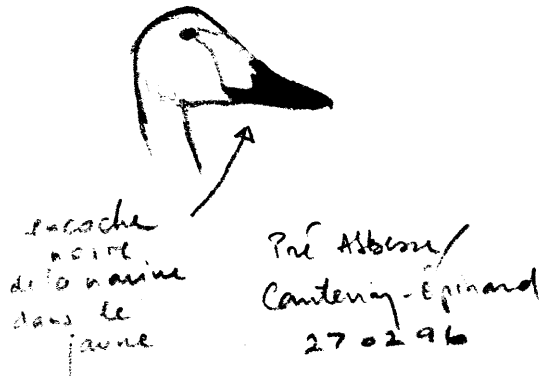 encoche
noire
de la narine
dans le
jaune
Pré Abbesse/
Cantenay-Épinard
27 02 96